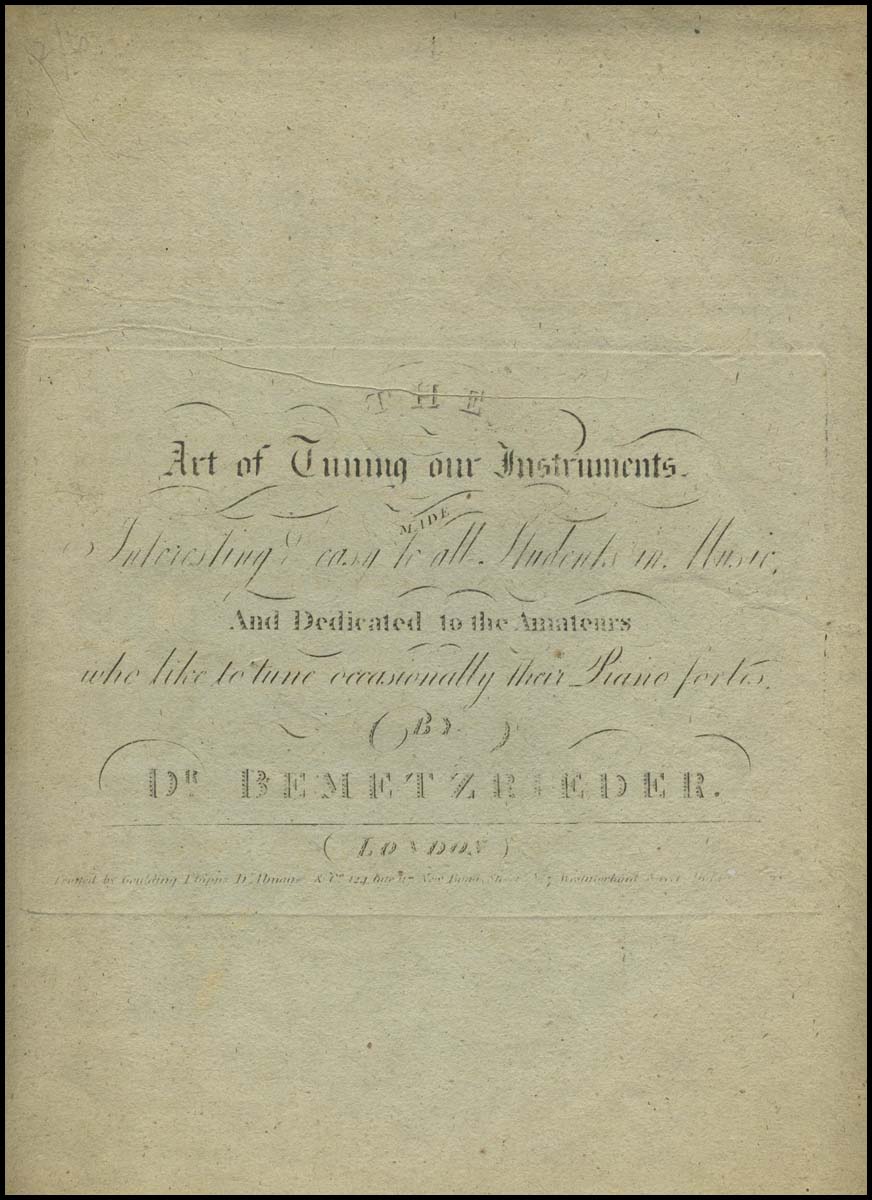 THE
Art of Tuning our Instruments.
MADE
Interesting & easy to all Students in Music,
And Dedicated to the Amateurs
who like to tune occasionally their Piano fortes.
(BY)
DR BEMETZRIEDER.
(LONDON)
Printed by Goulding Phipps D'Almaine & Co. 124 New Bond Street & 7 Westmorland Street